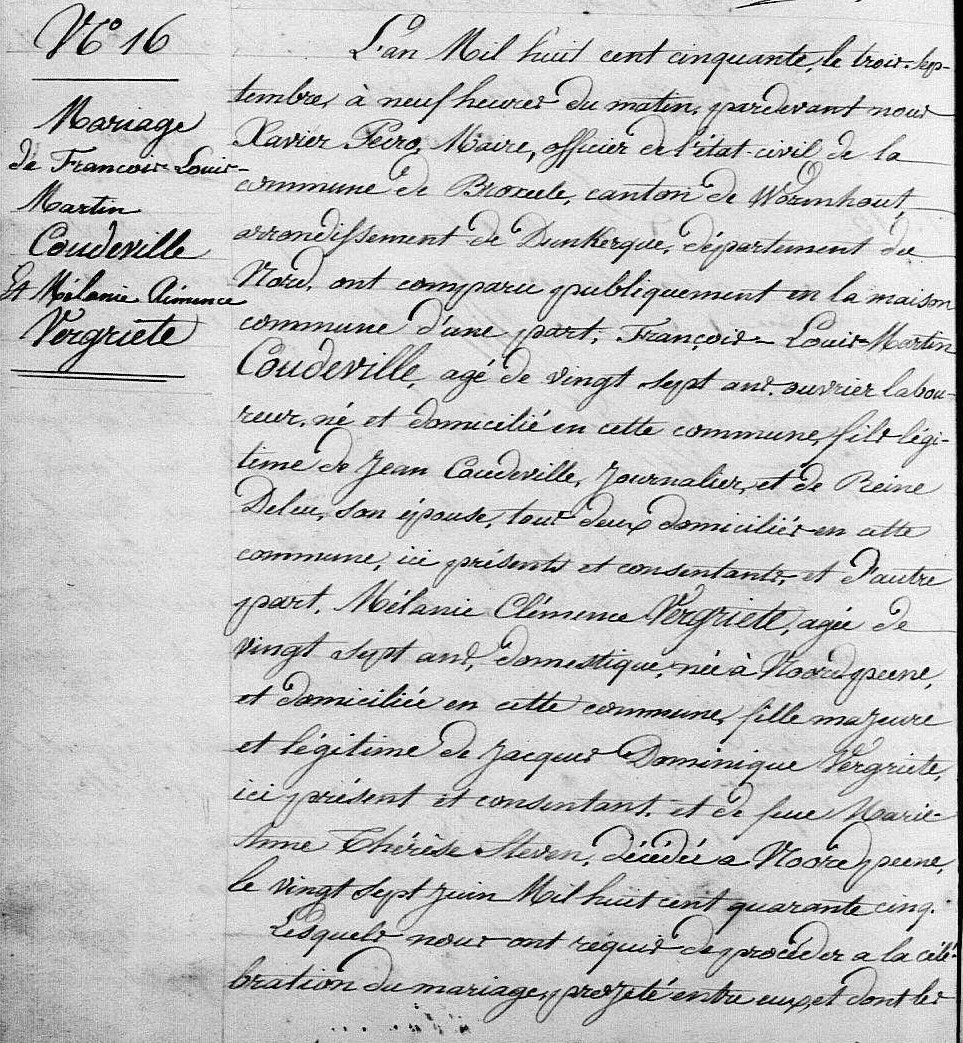 N° 16
Mariage
de François-Louis-
Martin
Coudeville
Et Mélanie Clémence
Vergriete
L'an Mil huit cent cinquante, le trois-Sep-
tembre, à neuf heures du matin, pardevant nous
Xavier Peiro, Maire, officier de l'état-civil de la
commune de Broxeele, canton de Wormhout,
arrondissement de Dunkerque, département du
Nord, ont comparu publiquement en la maison
commune d'une part, François-Louis-Martin
Coudeville, agé de vingt sept ans, ouvrier labou-
reur, né et domicilié en cette commune, fils légi-
time de Jean Coudeville, Journalier, et de Reine
Deleu, son épouse, tous deux domiciliés en cette
commune, ici présents et consentants, et d'autre
part, Mélanie Clémence Vergriete, agée de
vingt sept ans, domestique, née à Noordpeene,
et domiciliée en cette commune, fille majeure
et légitime de Jacques Dominique Vergriete,
ici présent et consentant, et de feue Marie-
Anne Thérèse Steven, décédée a Noordpeene,
le vingt sept Juin Mil huit cent quarante cinq.
Lesquels nous ont requis de procéder a la célé-
bration du mariage projeté entre eux, et dont les